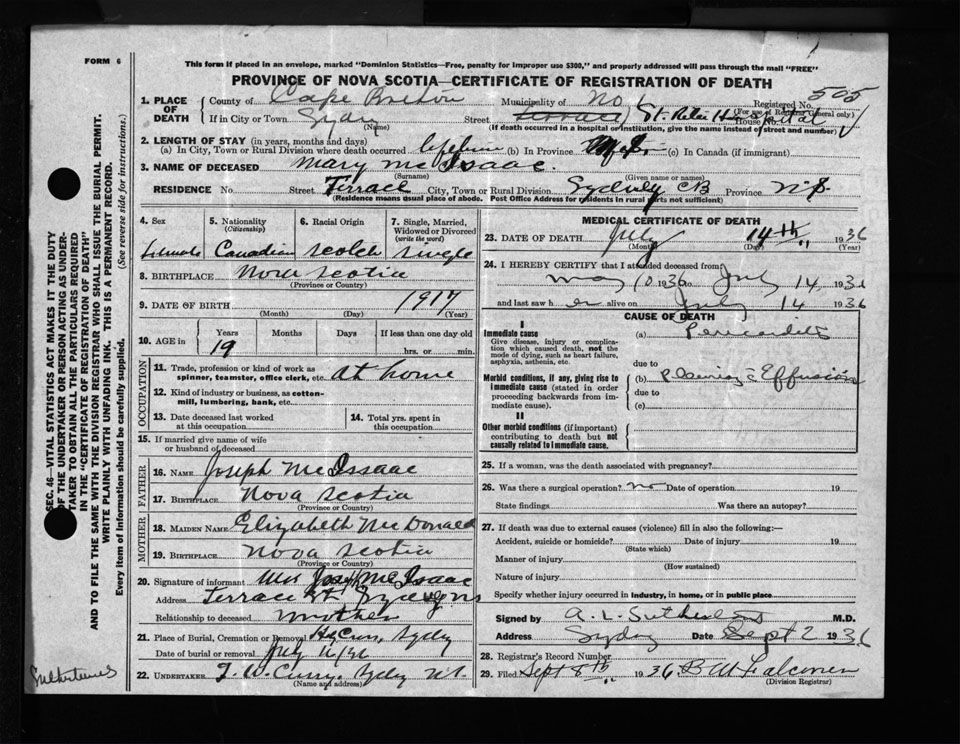 FORM 6
This form if placed in an envelope, marked "Dominion Statistics—Free, penalty for improper use $300," and properly addressed will pass through the mail "FREE"
PROVINCE OF NOVA SCOTIA—CERTIFICATE OF REGISTRATION OF DEATH
1. PLACE OF DEATH
County of Cape Breton Municipality of No 1 Registered No. 505
(For use of Registrar General only)
If in City or Town Sydney (Name) Street Terrace St. Rita Hospital House No.
(If death occurred in a hospital or institution, give the name instead of street and number)
2. LENGTH OF STAY (in years, months and days)
(a) In City, Town or Rural Division where death occurred lifetime (b) In Province (c) In Canada (if immigrant)
3. NAME OF DECEASED Mary McIsaac
(Surname) (Given name or names)
RESIDENCE No. Street Terrace City, Town or Rural Division Sydney CB Province N.S.
(Residence means usual place of abode. Post Office Address for residents in rural parts not sufficient)
4. Sex Female
5. Nationality (Citizenship) Canadian
6. Racial Origin Scotch
7. Single, Married, Widowed or Divorced (write the word) single
8. BIRTHPLACE Nova Scotia
(Province or Country)
9. DATE OF BIRTH 1917
(Month) (Day) (Year)
10. AGE in Years Months Days If less than one day old
19 hrs. or min.
OCCUPATION
11. Trade, profession or kind of work as spinner, teamster, office clerk, etc. At home
12. Kind of industry or business, as cotton-mill, lumbering, bank, etc.
13. Date deceased last worked at this occupation
14. Total yrs. spent in this occupation
15. If married give name of wife or husband of deceased
FATHER
16. NAME Joseph McIssaac
17. BIRTHPLACE Nova Scotia
(Province or Country)
MOTHER
18. MAIDEN NAME Elizabeth McDonald
19. BIRTHPLACE Nova Scotia
(Province or Country)
20. Signature of informant Mrs Joseph McIsaac
Address Terrace St. Sydney NS
Relationship to deceased mother
21. Place of Burial, Cremation or Removal Sydney
Date of burial or removal July 16/36
22. UNDERTAKER T. W. Curry, Sydney N.S.
(Name and address)
MEDICAL CERTIFICATE OF DEATH
23. DATE OF DEATH July 14th 1936
(Month) (Day) (Year)
24. I HEREBY CERTIFY that I attended deceased from
May 10 1936 to July 14, 1936
and last saw her alive on July 14 1936
CAUSE OF DEATH
I
Immediate cause
Give disease, injury or complication which caused death, not the mode of dying, such as heart failure, asphyxia, asthenia, etc.
(a) Pericarditis
due to
Morbid conditions, if any, giving rise to immediate cause (stated in order proceeding backwards from immediate cause).
(b) Pleurisy c Effusion
due to
(c)
II
Other morbid conditions (if important) contributing to death but not causally related to immediate cause.
25. If a woman, was the death associated with pregnancy?
26. Was there a surgical operation? no Date of operation 19
State findings Was there an autopsy?
27. If death was due to external causes (violence) fill in also the following:—
Accident, suicide or homicide? Date of injury 19
(State which)
Manner of injury
(How sustained)
Nature of injury
Specify whether injury occurred in industry, in home, or in public place
Signed by A. L. Sutherland M.D.
Address Sydney Date Sept 2 1936
28. Registrar's Record Number
29. Filed Sept 8th 1936
(Division Registrar)
SEC. 46—VITAL STATISTICS ACT MAKES IT THE DUTY
OF THE UNDERTAKER OR PERSON ACTING AS UNDER-
TAKER TO OBTAIN ALL THE PARTICULARS REQUIRED
IN THE "CERTIFICATE OF REGISTRATION OF DEATH"
AND TO FILE THE SAME WITH THE DIVISION REGISTRAR WHO SHALL ISSUE THE BURIAL PERMIT.
WRITE PLAINLY WITH UNFADING INK. THIS IS A PERMANENT RECORD.
Every item of information should be carefully supplied. (See reverse side for instructions.)